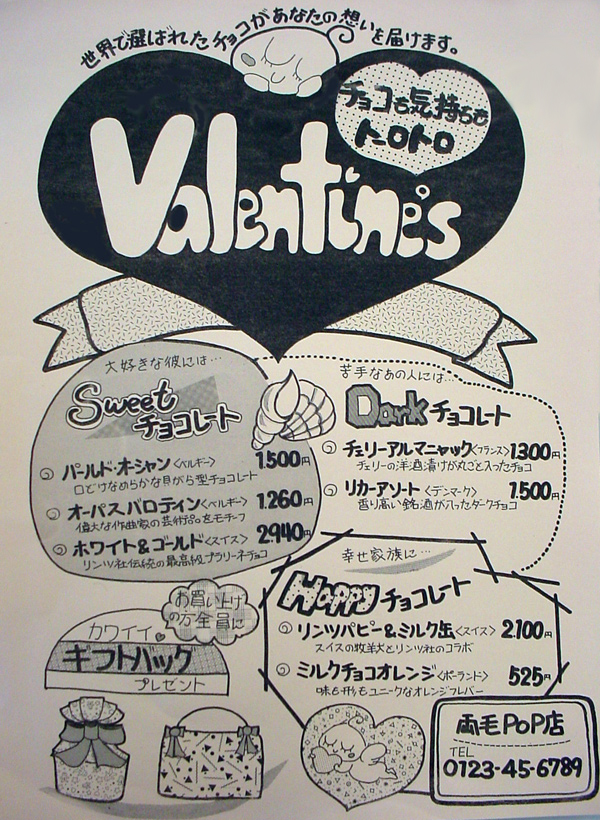 世界で選ばれたチョコがあなたの想いを届けます。
チョコも気持ちも
トロトロ
Valentine's
大好きな彼には…
Sweet
チョコレート
パールド・オーシャン〈ベルギー〉1.500円
口どけなめらかな貝がら型チョコレート
オーパスバロティン〈ベルギー〉1.260円
偉大な作曲家の芸術品をモチーフ
ホワイト&ゴールド〈スイス〉2.940円
リンツ社伝統の最高級プラリーネチョコ
苦手なあの人には…
Dark チョコレート
チェリーアルマニャック〈フランス〉1300円
チェリーの洋酒漬けが丸ごと入ったチョコ
リカーアソート〈デンマーク〉1.500円
香り高い銘酒が入ったダークチョコ
幸せ家族に…
Happy チョコレート
リンツパピー&ミルク缶〈スイス〉2.100円
スイスの牧羊犬とリンツ社のコラボ
ミルクチョコオレンジ〈ポーランド〉525円
味も形もユニークなオレンジフレバー
お買い上げ
の方全員に
カワイイ
ギフトバック
プレゼント
両毛POP店
TEL
0123-45-6789